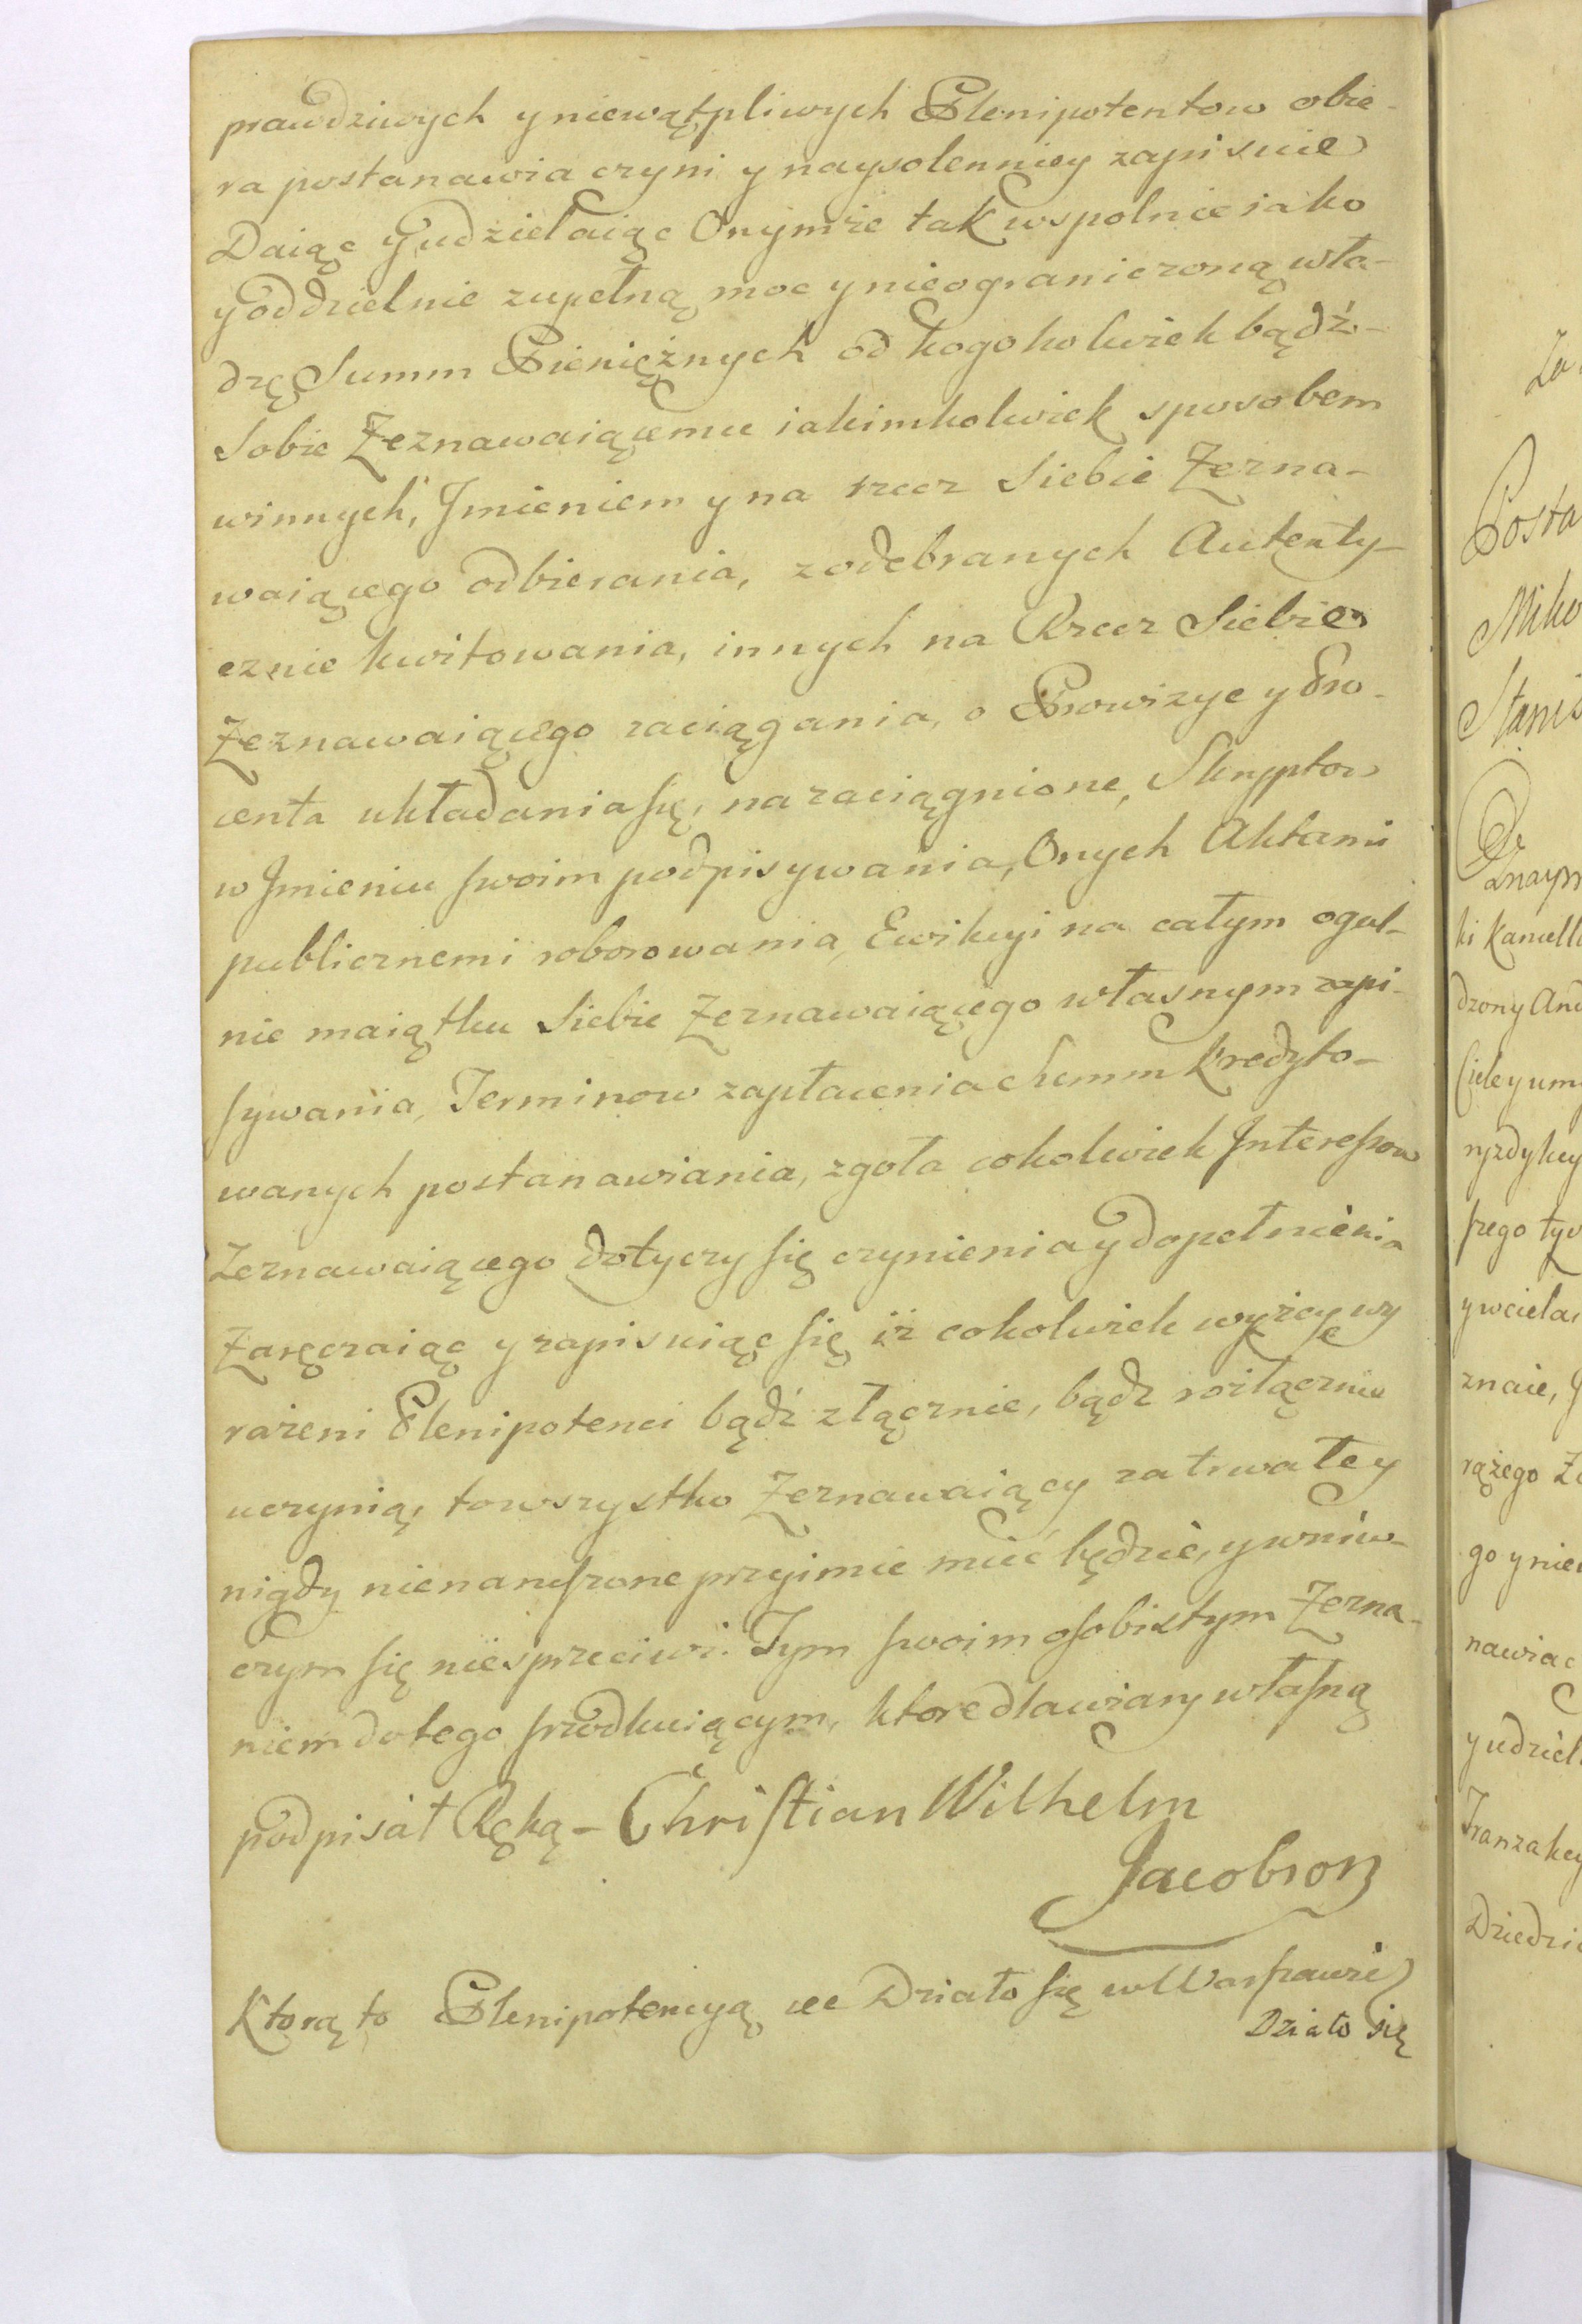 prawdziwych y niewątpliwych Plenipotentow obie-
ra postanawia czyni y naysolenniey zapisuie
Daiąc y udzielaiąc Onymże tak wspolnie iako
y oddzielnie zupełną moc y nieograniczoną wła-
dzę Summ Pieniężnych od kogokolwiek bądź-
Sobie Zeznawaiącemu iakimkolwiek sposobem
winnych, Jmieniem y na rzecz Siebie Zezna-
waiącego odbierania, z odebranych Autenty-
cznie kwitowania, innych na Rzecz Siebie
Zeznawaiącego zaciągania, o Prowizye y Pro-
centa układania się, na zaciągnione, Skryptow
w Jmieniu swoim podpisywania, Onych Aktami
publicznemi roborowania, Ewikcyi na całym ogul-
nie maiątku Siebie Zeznawaiącego własnym zapi-
sywania, Terminow zapłacenia Summ kredyto-
wanych postanawiania, zgoła cokolwiek Jnteressow
Zeznawaiącego dotyczy się czynienia y dopełnienia
Zaręczaiąc y zapisuiąc się iż cokolwiek wyżey wy
rażeni Plenipotenci bądź złącznie, bądź rozłącznie
uczynią, to wszystko Zeznawaiący za trwałe y
nigdy nienaruszone przyimie mieć będzie, y w niw-
czym się niesprzeciwi. Tym swoim osobistym Zezna-
niem do tego srzodkuiącym, ktore dla wiary własną
podpisał Ręką - Christian Wilhelm
Jacobson
Ktorą to Plenipotencyą ec Działo się w Warszawie
Działo się
Za
Posta
Miko
Stanis
ki Kancella
drzony And
Ciele y umy
ryzdykcy
szego tyc
y wciela
znaie, J
rążego Z
go y niew
nawiac
y udziel
Tranzakcy
Dziedzic